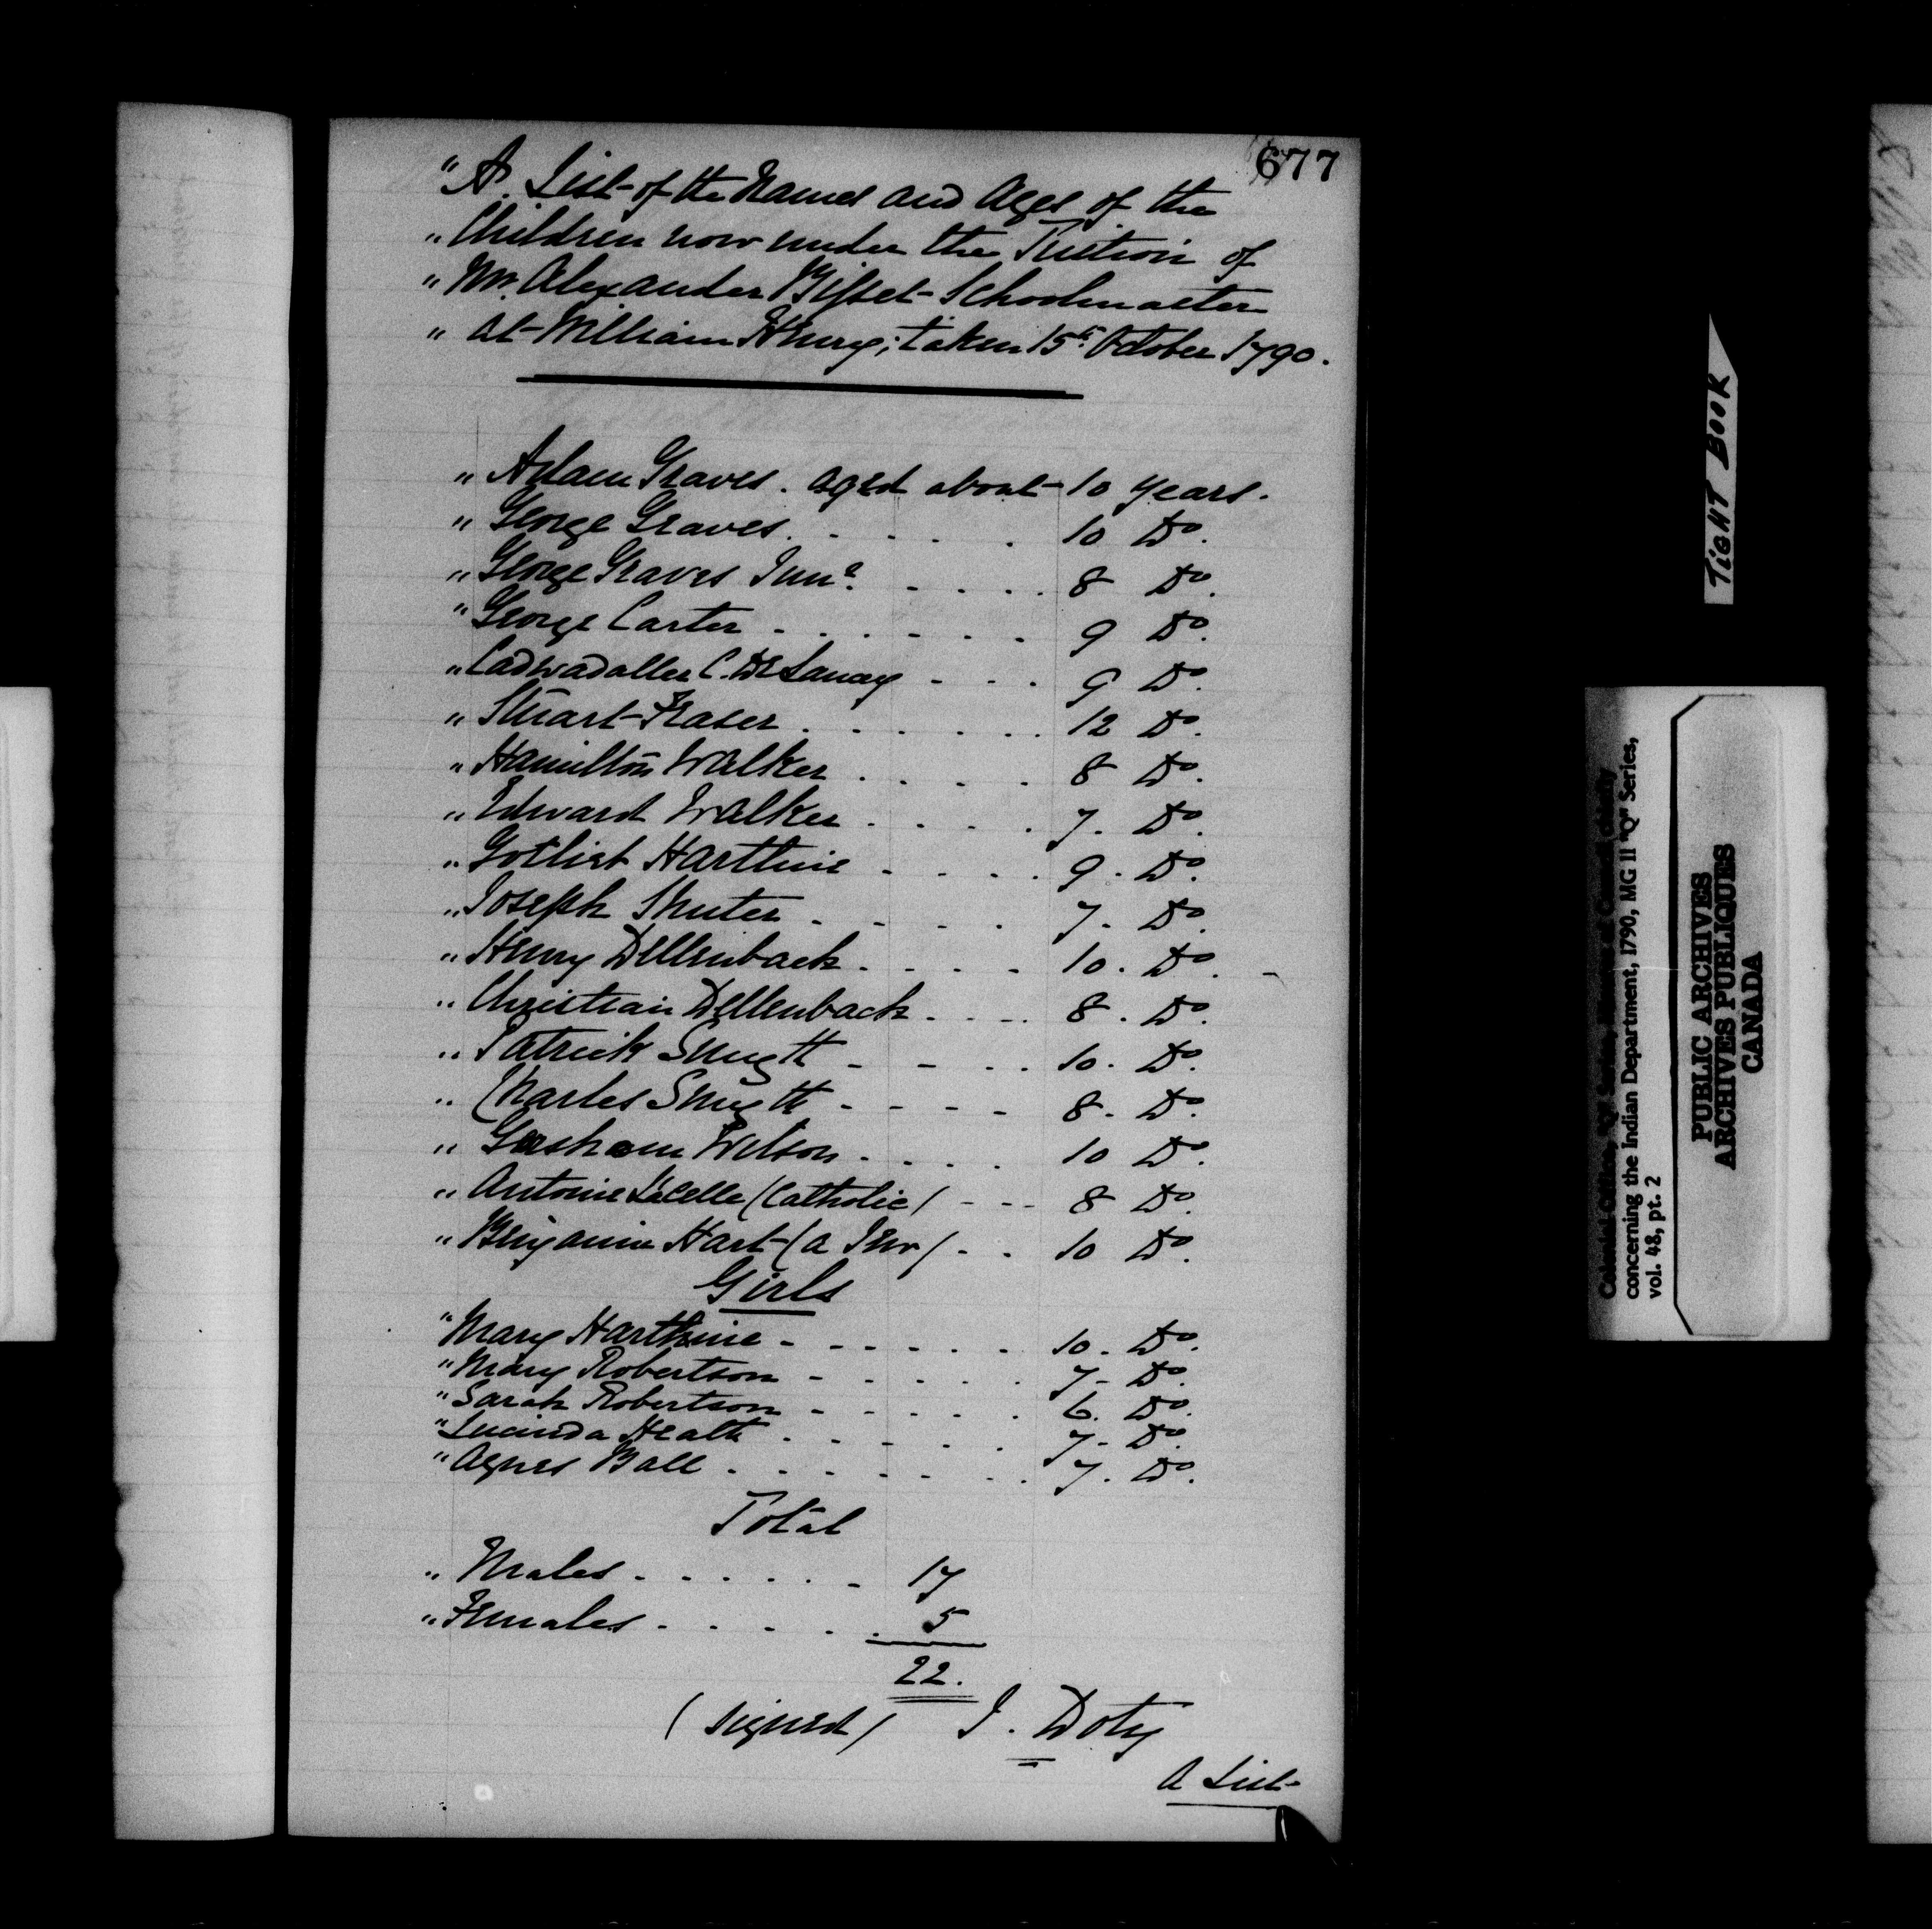 677
"A. List of the Names and Ages of the
"Children now under the Tuition of
"Mr. Alexander Bisset Schoolmaster
" at William Henry; taken 15th October 1790.
" Adam Graves. aged about 10 years.
" George Graves. . . . . . 10 Do.
" George Graves Junr. . . . . 8 Do.
" George Carter - . . . . . . 9 Do.
" Cadwadaller C. DeLancy - - . 9 Do.
" Stuart Fraser . . . . . . . 12 Do.
" Hamilton Walker . . . . . 8 Do.
" Edward Walker . . . . . 7. Do.
" Gotliet Harthine . . . . 9. Do.
" Joseph Shuter . - . . . 7. Do.
" Henry Dellenback . . . . 10. Do. -
" Christian Dellenback . - - . 8. Do.
" Patrick Smyth - - . . 10. Do.
" Charles Smyth - - - - 8. Do.
" Gersham Wilson . . . . 10 Do.
" Antonie LaCelle (Catholic) - - - 8 Do.
" Benjamin Hart (a Jew) - . 10 Do.
Girls
" Mary Harthine - . . . . . 10. Do.
" Mary Robertson - . . . . 7 - Do.
" Sarah Robertson - . . . . 6. Do.
" Lucinda Heath . . . . . 7 - Do.
" Agnes Ball . . . . . . . 7. Do.
Total
" Males . . . . . . 17
" Females . . . . . . 5
22.
(signed) J. Doty
A List
TIGHT BOOK
concerning the Indian Department, 1790, MG 11 "Q" Series,
vol. 48, pt. 2
PUBLIC ARCHIVES
ARCHIVES PUBLIQUES
CANADA